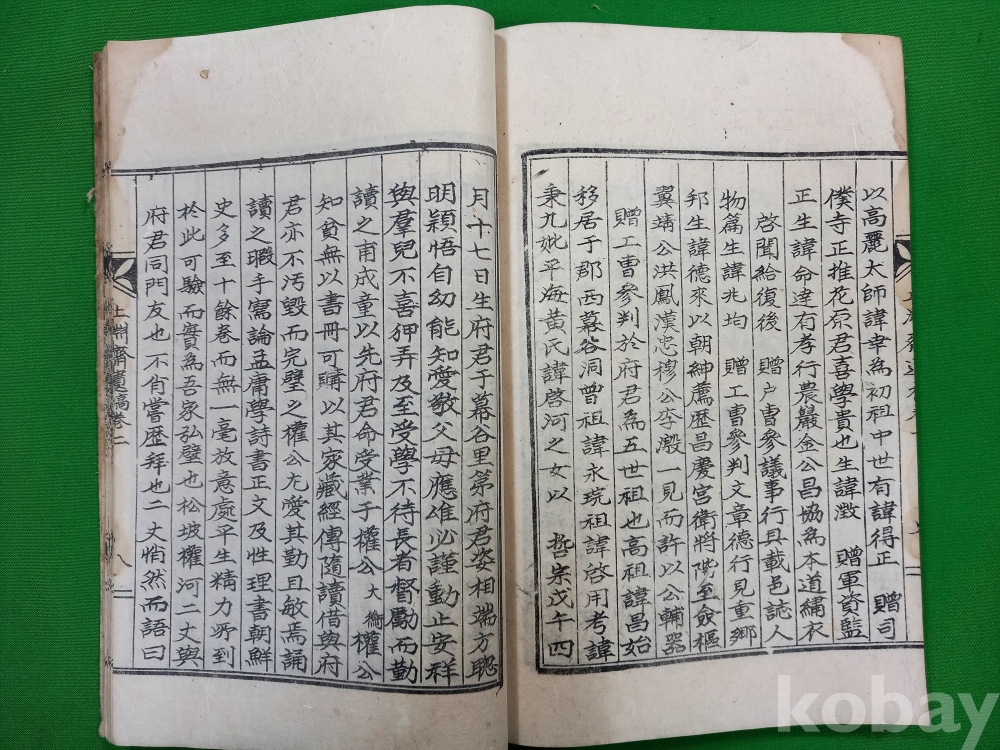 以高麗太師諱幸爲初祖中世有諱得正 贈司
僕寺正推花原君喜學貴也生諱澂 贈軍資監
正生諱命達有孝行農巖金公昌協爲本道繡衣
啓聞給復後 贈戶曹參議事行具載邑誌人
物篇生諱兆均 贈工曹參判文章德行見重鄉
邦生諱德來以朝紳薦歷昌慶宮衛將陞至僉樞
翼靖公洪鳳漢忠穆公李潊一見而許以公輔器
贈工曹參判於府君爲五世祖也高祖諱昌始
移居于郡西幕谷洞曾祖諱永琓祖諱啓用考諱
秉九妣平海黃氏諱啓河之女以 哲宗戊午四
月十七日生府君于幕谷里第府君姿相端方聰
明穎悟自幼能知愛敬父母應唯必謹動止安祥
與羣兒不喜狎弄及至受學不待長者督勵而勤
讀之甫成童以先府君命受業于權公大衡權公
知貧無以書冊可購以其家藏經傳隨讀借與府
君亦不汚毀而完璧之權公尤愛其勤且敏焉誦
讀之暇手寫論孟庸學詩書正文及性理書朝鮮
史多至十餘卷而無一毫放意處平生精力所到
於此可驗而實爲吾家弘璧也松坡權河二丈與
府君同門友也不肖嘗歷拜也二丈悄然而語曰
土淵齋實稿卷二
八
kobay